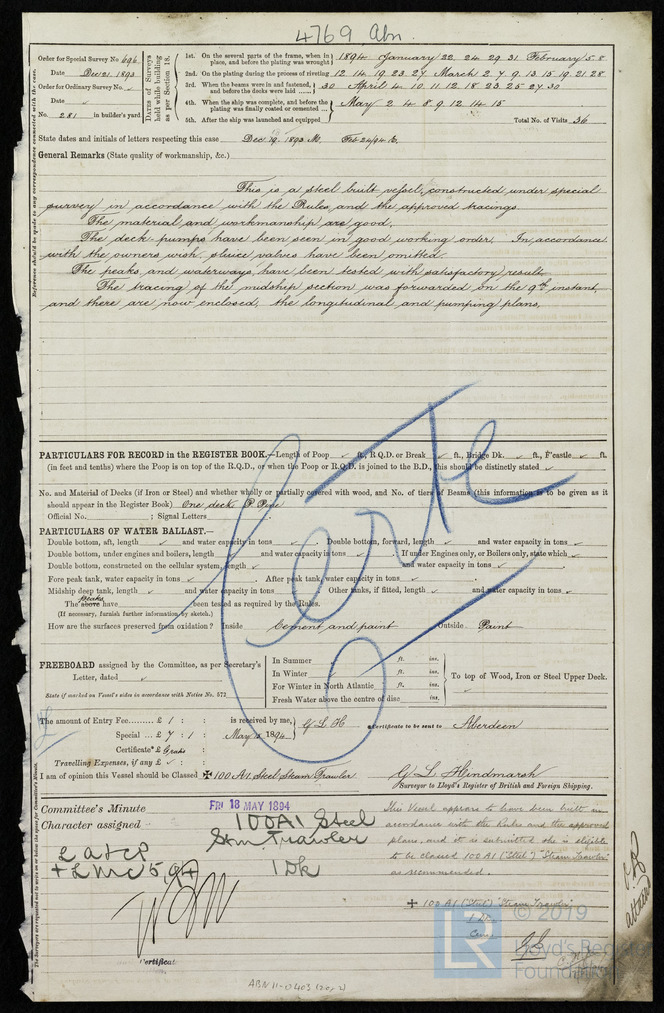 4769 Abn.
Order for Special Survey No. 696
Date Dec 21. 1893
Order for Ordinary Survey No.
Date
No. 281 in builder's yard
Dates of Surveys held while building as per Section 18.
1st. On the several parts of the frame, when in place, and before the plating was wrought 1894 January 22. 24. 29. 31. February 5. 8
2nd. On the plating during the process of riveting 12 14 19 23. 27. March 2. 7. 9. 13. 15. 19. 21. 28.
3rd. When the beams were in and fastened, and before the decks were laid 30 April 4. 10. 11. 12. 18. 23. 25. 27. 30
4th. When the ship was complete, and before the plating was finally coated or cemented May 2. 4. 8. 9. 12. 14. 15
5th. After the ship was launched and equipped
Total No. of Visits 36
State dates and initials of letters respecting this case Dec 19. 1893 M. Feb 24/94 E.
General Remarks (State quality of workmanship, &c.)
This is a steel built vessel, constructed under special
survey in accordance with the Rules and the approved tracings
The material and workmanship are good,
The deck pumps have been seen in good working order. In accordance
with the owners wish, sluice valves have been omitted.
The peaks and waterways, have been tested with satisfactory result.
The tracing of the midship section was forwarded on the 9th instant,
and there are now enclosed, the longitudinal and pumping plans,
PARTICULARS FOR RECORD in the REGISTER BOOK.—Length of Poop ft., R.Q.D. or Break ft., Bridge Dk. ft., F'castle ft.
(in feet and tenths) where the Poop is on top of the R.Q.D., or when the Poop or R.Q.D. is joined to the B.D., this should be distinctly stated
No. and Material of Decks (if Iron or Steel) and whether wholly or partially covered with wood, and No. of tiers of Beams (this information is to be given as it
should appear in the Register Book) One deck P. Pine
Official No. ; Signal Letters
PARTICULARS OF WATER BALLAST.—
Double bottom, aft, length and water capacity in tons . Double bottom, forward, length and water capacity in tons
Double bottom, under engines and boilers, length and water capacity in tons . If under Engines only, or Boilers only, state which
Double bottom, constructed on the cellular system, length and water capacity in tons
Fore peak tank, water capacity in tons . After peak tank, water capacity in tons
Midship deep tank, length and water capacity in tons Other tanks, if fitted, length and water capacity in tons
The above peaks have been tested as required by the Rules.
(If necessary, furnish further information by sketch.)
How are the surfaces preserved from oxidation? Inside Cement and paint Outside Paint
FREEBOARD assigned by the Committee, as per Secretary's
Letter, dated
State if marked on Vessel's sides in accordance with Notice No. 572
In Summer ft. ins.
In Winter ft. ins.
For Winter in North Atlantic ft. ins.
Fresh Water above the centre of disc ins.
To top of Wood, Iron or Steel Upper Deck.
The amount of Entry Fee £ 1 : : is received by me,
Special £ 7 : 1 : May 15 1894 G L H Certificate to be sent to Aberdeen
Certificate* £ Gratis :
Travelling Expenses, if any £ :
I am of opinion this Vessel should be Classed ✠ 100 A1 Steel Steam Trawler
G L Hindmarsh
Surveyor to Lloyd's Register of British and Foreign Shipping.
Committee's Minute FRI 18 MAY 1894
Character assigned 100A1 Steel
Stm Trawler
1 Dk
+LMC 5,94
This Vessel appears to have been built in
accordance with the Rules and the approved
plans, and it is submitted she is eligible
to be classed 100 A1 ("Steel") "Steam Trawler"
as recommended.
✠ 100 A1 ("Steel") "Steam Trawler"
1 Dk
Certificate
© 2019
Lloyd's Register
Foundation
ABN 11-0403 (2 of 2)